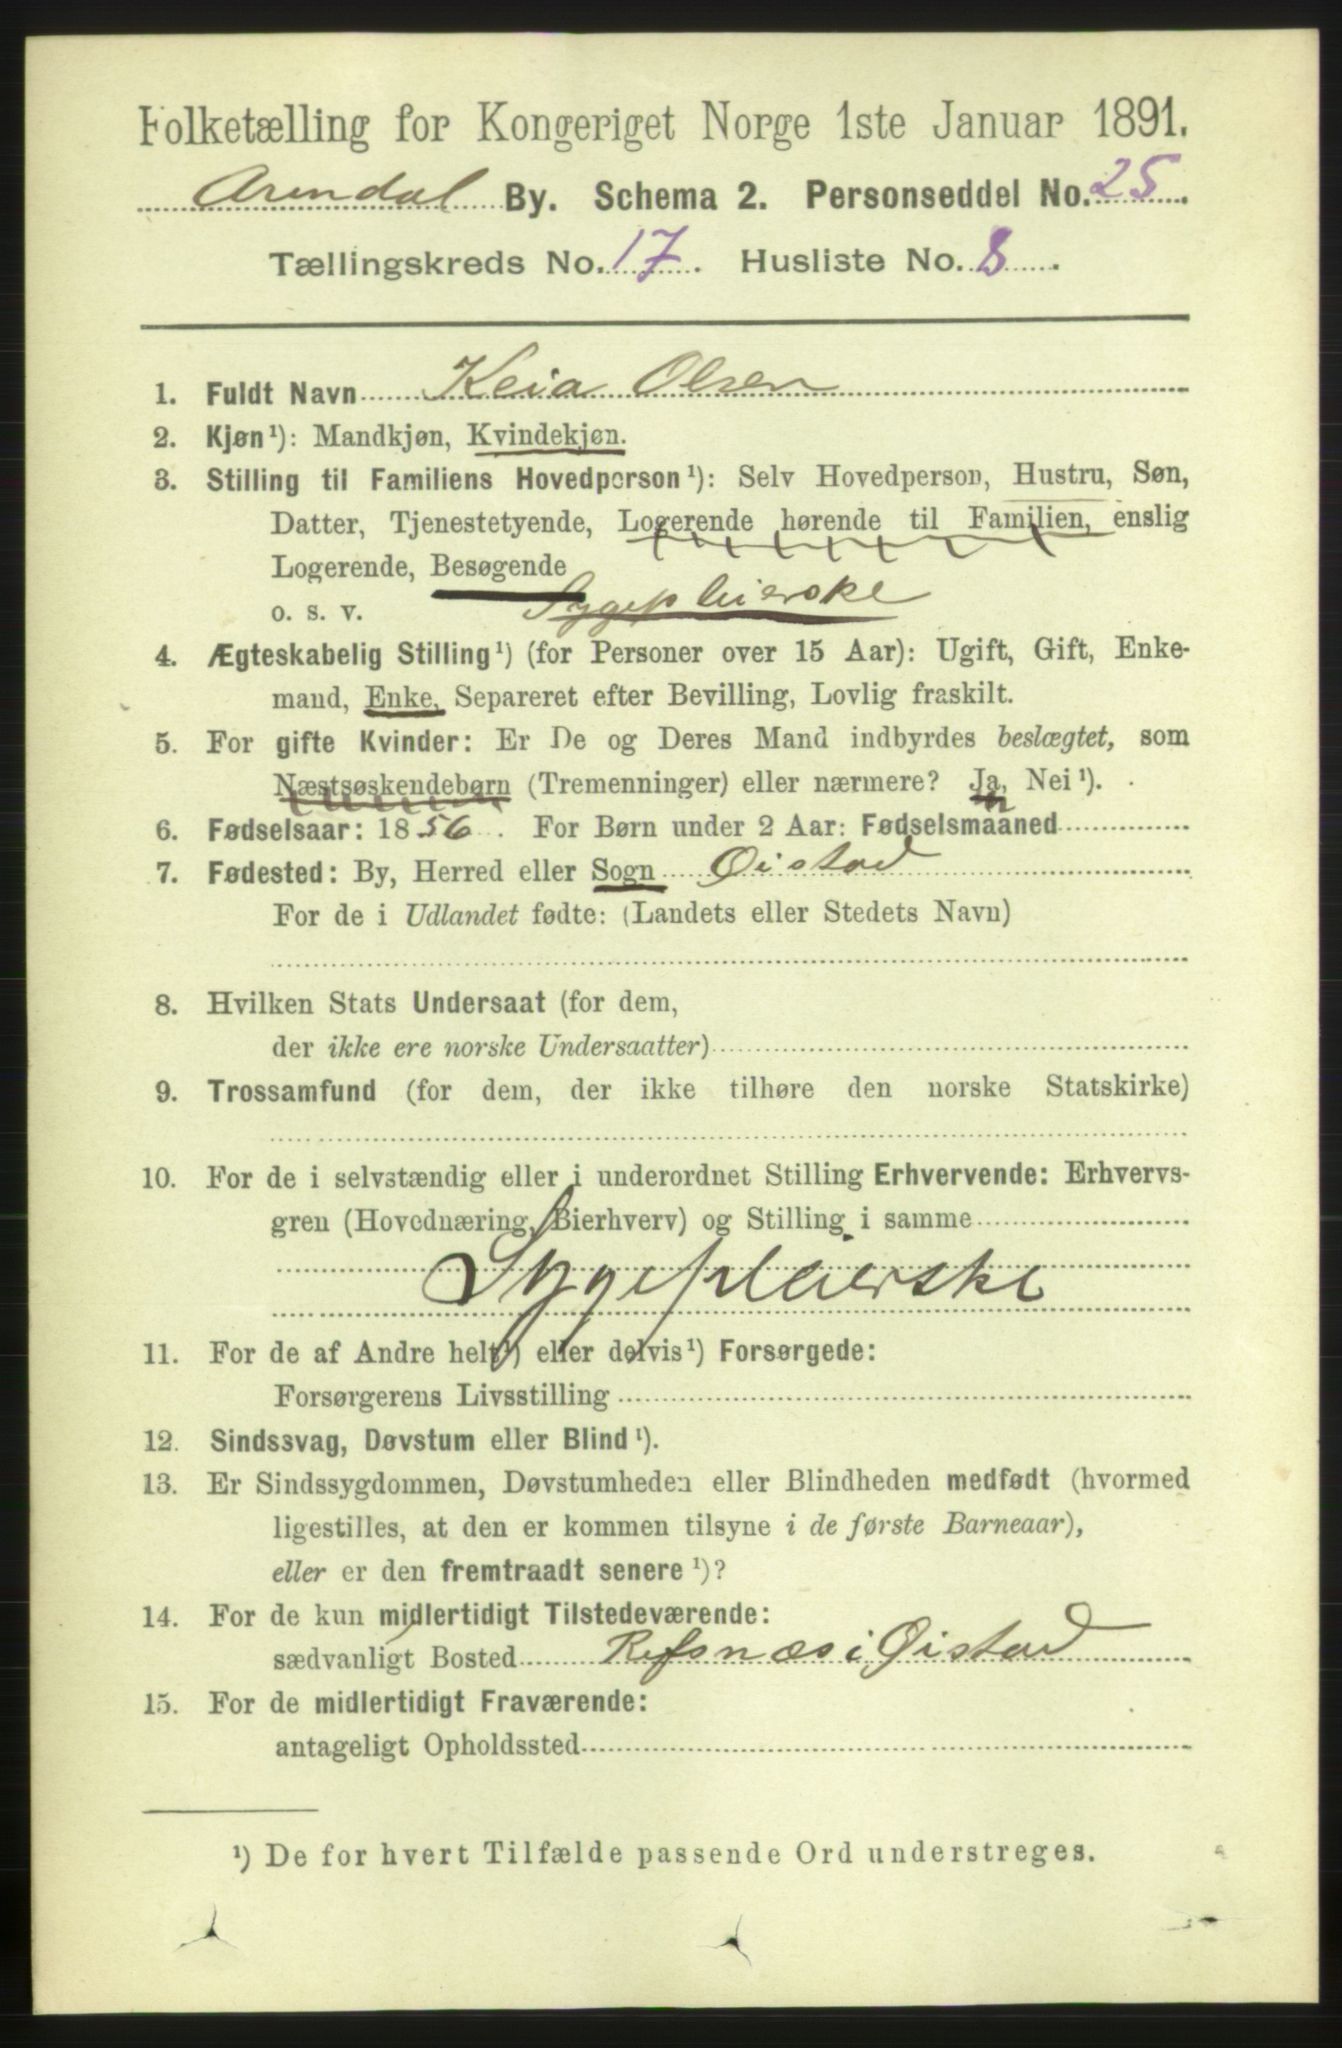 Folketælling for Kongeriget Norge 1ste Januar 1891.
Arendal By. Schema 2. Personseddel No. 25.
Tællingskreds No. 17. Husliste No. 8.
1. Fuldt Navn Keia Olsen
2. Kjøn¹): Mandkjøn, Kvindekjøn.
3. Stilling til Familiens Hovedperson¹): Selv Hovedperson, Hustru, Søn,
Datter, Tjenestetyende, Logerende hørende til Familien, enslig
Logerende, Besøgende
o. s. v. Sygepleierske
4. Ægteskabelig Stilling¹) (for Personer over 15 Aar): Ugift, Gift, Enke-
mand, Enke, Separeret efter Bevilling, Lovlig fraskilt.
5. For gifte Kvinder: Er De og Deres Mand indbyrdes beslægtet, som
Næstsøskendebørn (Tremenninger) eller nærmere? Ja, Nei¹).
6. Fødselsaar: 1856. For Børn under 2 Aar: Fødselsmaaned
7. Fødested: By, Herred eller Sogn Øistad
For de i Udlandet fødte: (Landets eller Stedets Navn)
8. Hvilken Stats Undersaat (for dem,
der ikke ere norske Undersaatter)
9. Trossamfund (for dem, der ikke tilhøre den norske Statskirke)
10. For de i selvstændig eller i underordnet Stilling Erhvervende: Erhvervs-
gren (Hovednæring, Bierhverv) og Stilling i samme
Sygepleierske
11. For de af Andre helt¹) eller delvis¹) Forsørgede:
Forsørgerens Livsstilling
12. Sindssvag, Døvstum eller Blind¹).
13. Er Sindssygdommen, Døvstumheden eller Blindheden medfødt (hvormed
ligestilles, at den er kommen tilsyne i de første Barneaar),
eller er den fremtraadt senere¹)?
14. For de kun midlertidigt Tilstedeværende:
sædvanligt Bosted Refsnæs i Øistad
15. For de midlertidigt Fraværende:
antageligt Opholdssted
¹) De for hvert Tilfælde passende Ord understreges.